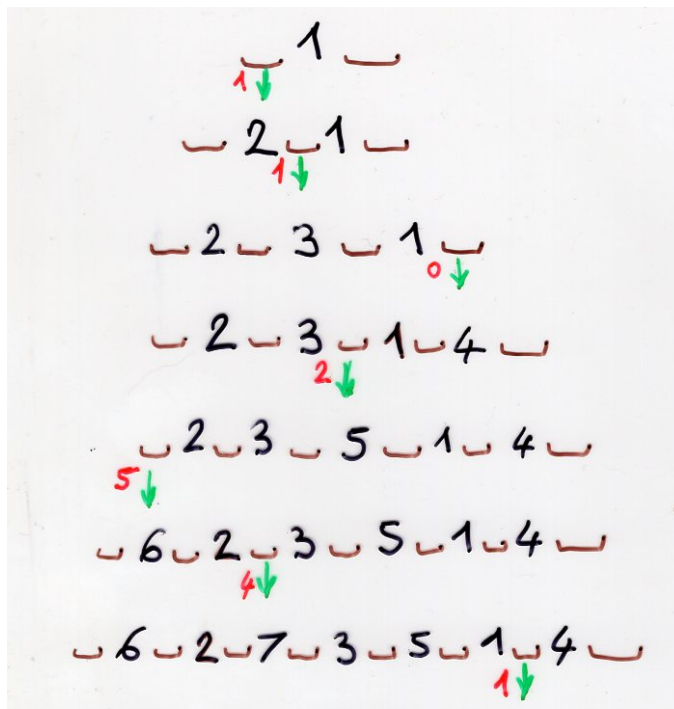 1
1
2 1
1
2 3 1
0
2 3 1 4
2
2 3 5 1 4
5
6 2 3 5 1 4
4
6 2 7 3 5 1 4
1